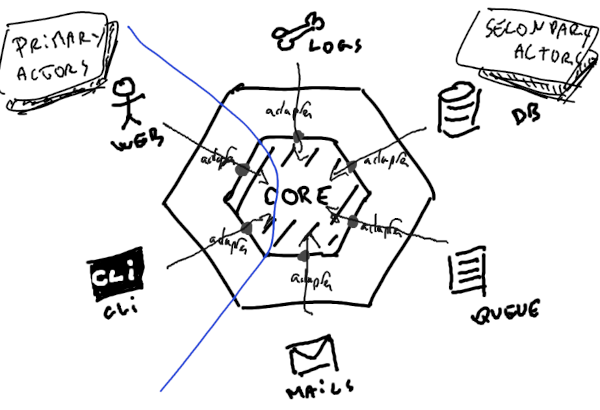 PRIMARY
ACTORS
LOGS
SECONDARY
ACTORS
DB
WEB
adapter
adapter
adapter
CORE
adapter
adapter
adapter
CLi
CLi
QUEUE
MAILS